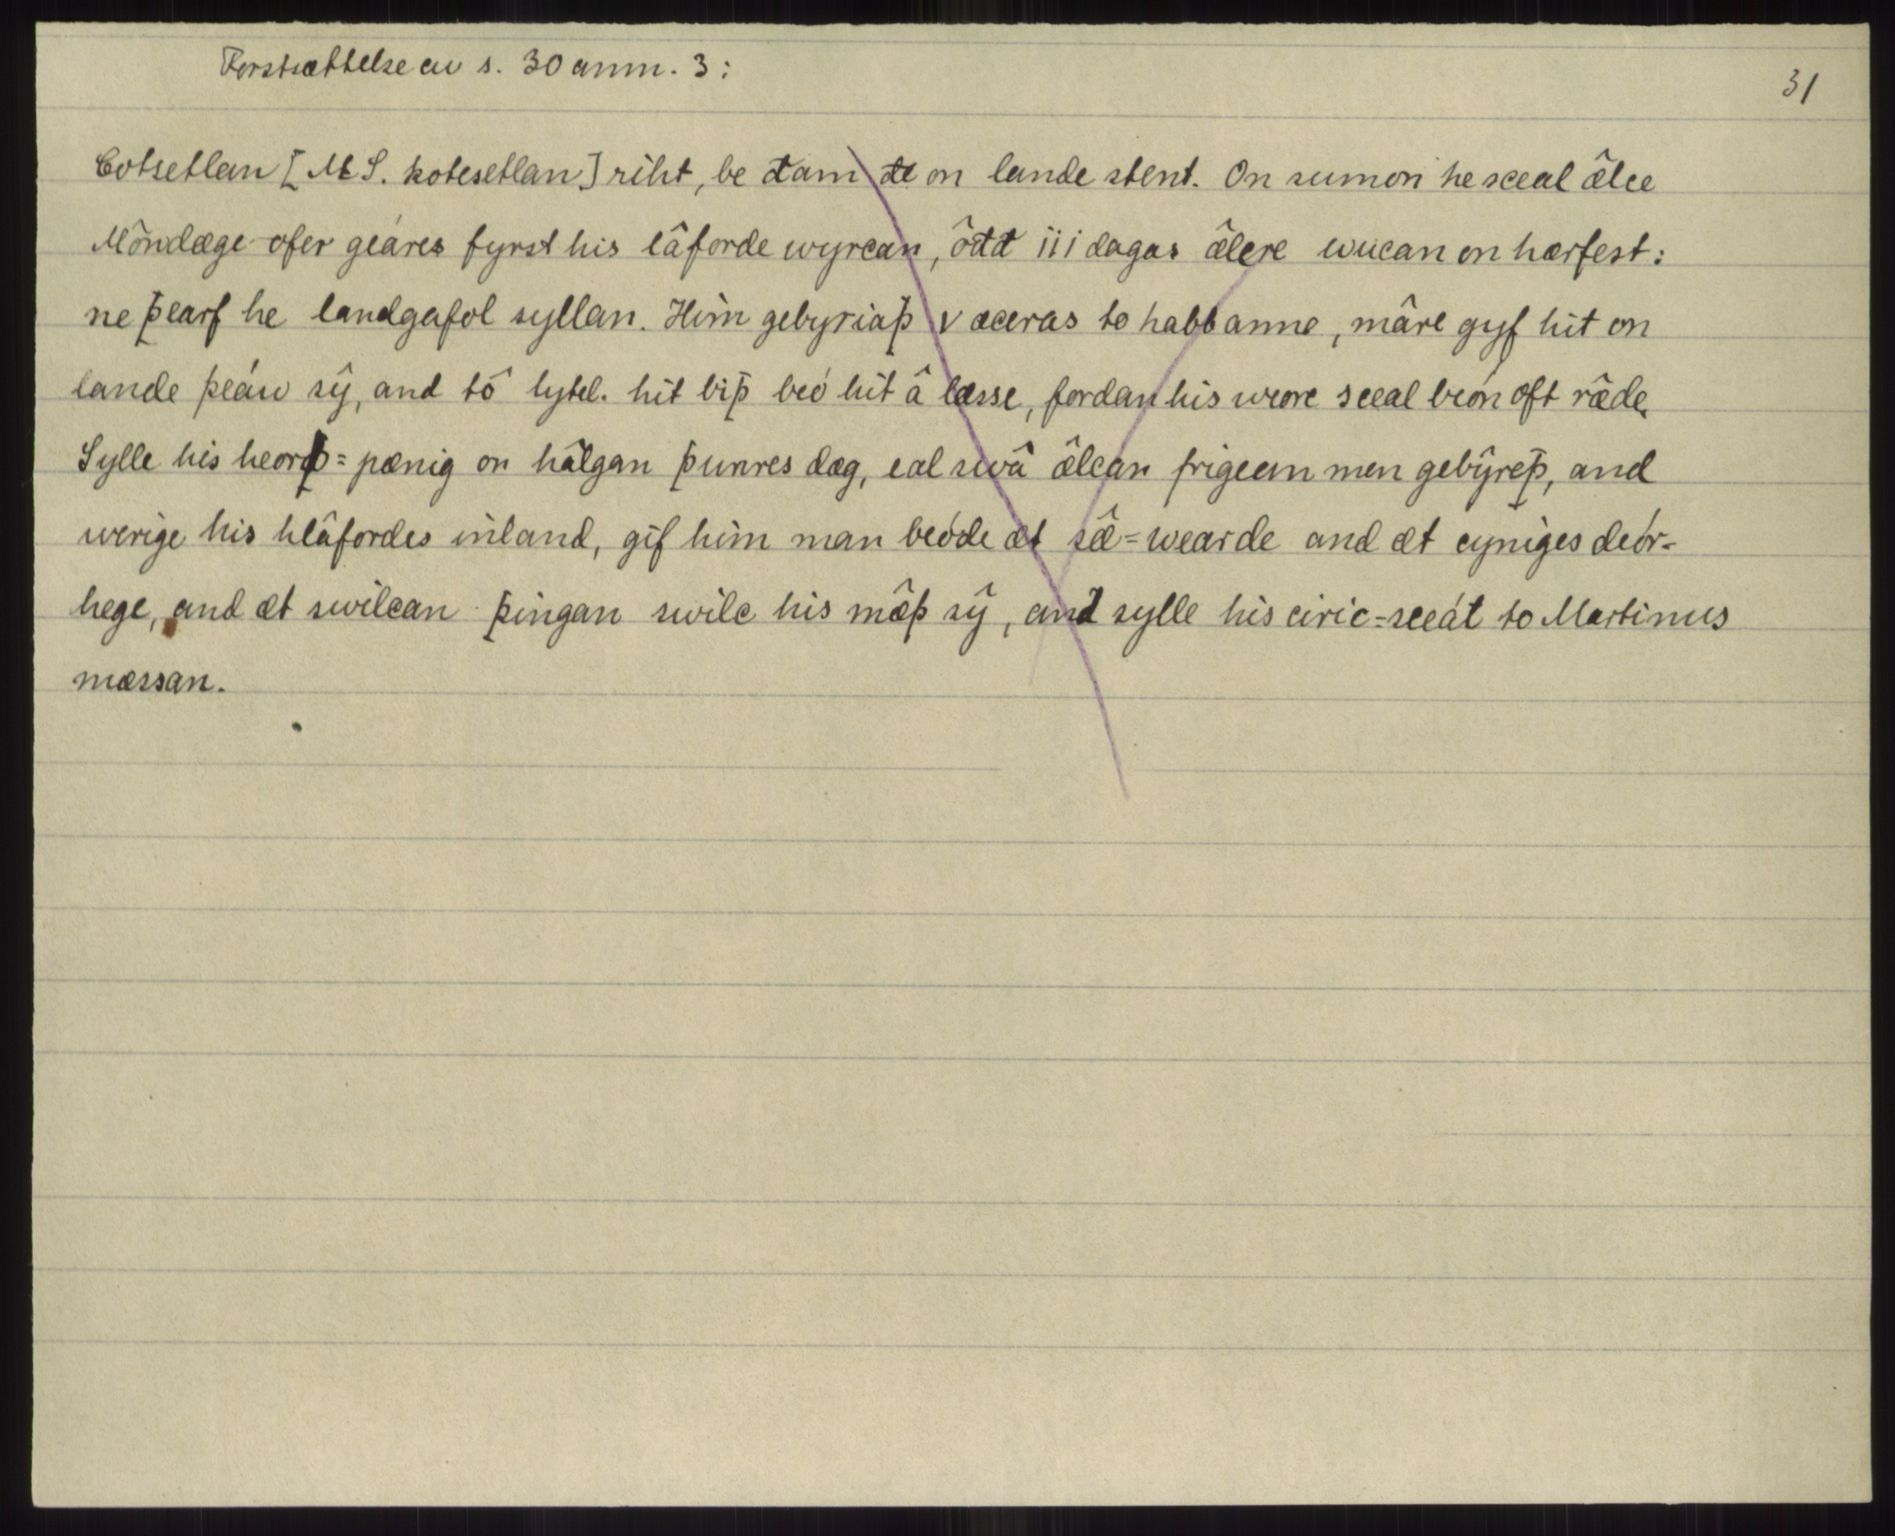 Forstsættelse av s. 30 anm. 3:
31
Cotsetlan [M S. kotesetlan] riht, be đam đe on lande stent. On sumon he sceal ælce
Môndæge ofer geáres fyrst his lâforde wyrcan, ôđđ iii dagas ælcre wucan on hærfest:
ne þearf he landgafol syllan. Him gebyriaþ v æceras to habbanne, mâre gyf hit on
lande þeáw sŷ, and tô lytel. hit biþ beó hit â læsse, fordan his weorc sceal beón oft ræde.
Sylle his heorþ=pænig on hâlgan þunres dæg, eal swâ ælcan frigean men gebŷreþ, and
werige his hlâfordes inland, gif him man beóde æt sæ=wearde and æt cyniges deór=
hege, and æt swilcan þingan swilc his mæþ sŷ, and sylle his ciric=sceát to Martinus
mæssan.